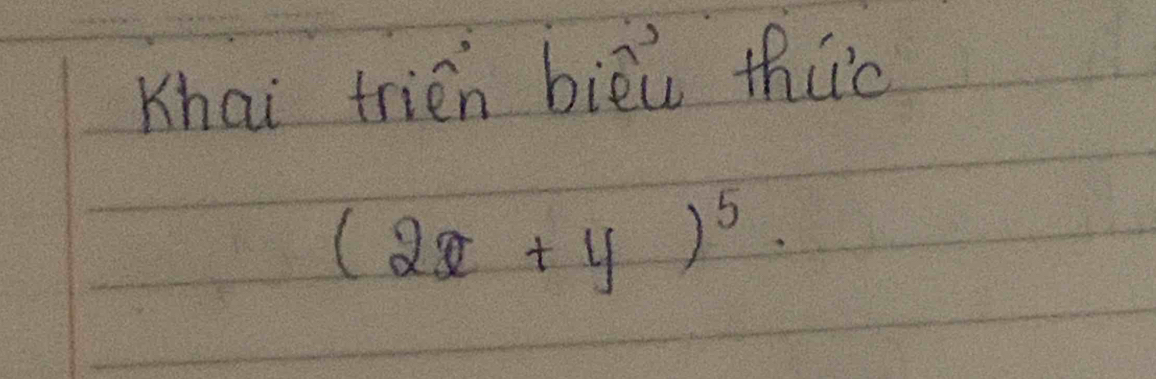 Khai triển biểu thức
(2x + y)⁵.